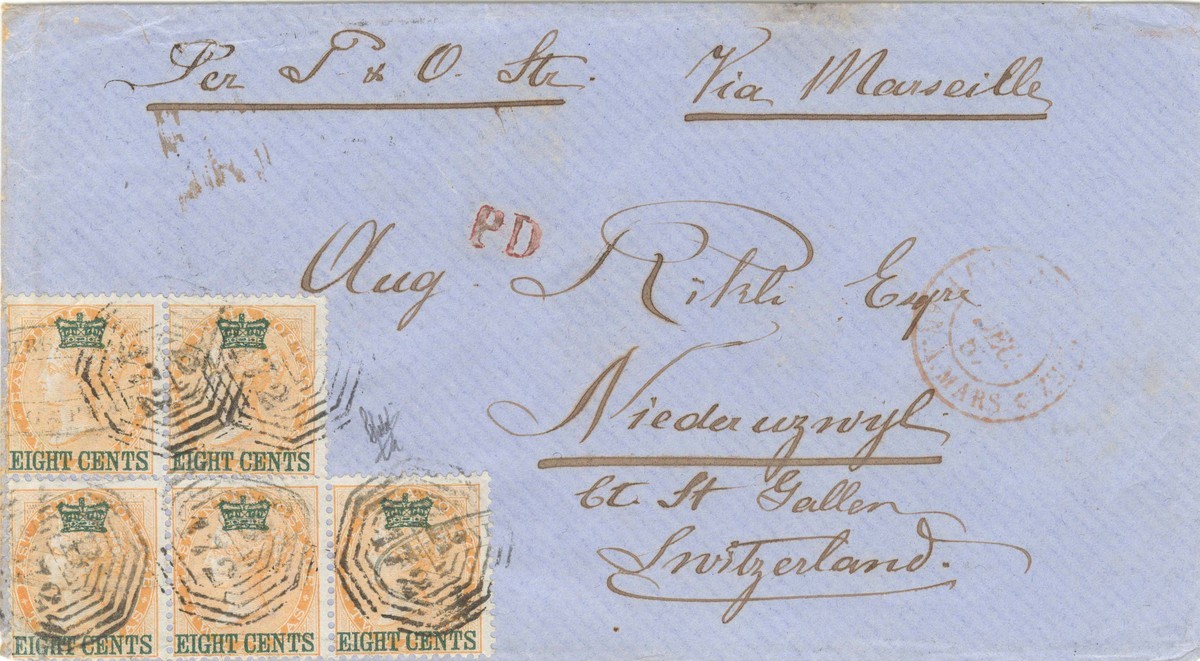 Per P & O. Str. Via Marseille
PD
Aug. Rikli Esqre
Niederuzwyl.
Ct. St Gallen
Switzerland.
MARS
EIGHT CENTS EIGHT CENTS
EIGHT CENTS EIGHT CENTS EIGHT CENTS